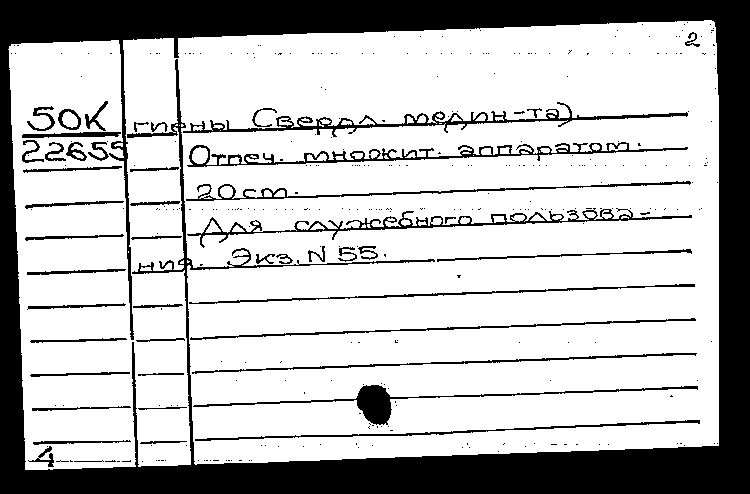 2
50К гиены Свердл. медин-та).
22655 Отпеч. множит. аппаратом.
20 cm.
Для служебного пользова-
ния. Экз. N 55.
4